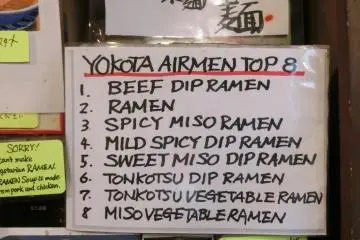 麺
YOKOTA AIRMEN TOP 8
1. BEEF DIP RAMEN
2. RAMEN
3. SPICY MISO RAMEN
4. MILD SPICY DIP RAMEN
5. SWEET MISO DIP RAMEN
6. TONKOTSU DIP RAMEN
7. TONKOTSU VEGETABLE RAMEN
8 MISO VEGETABLE RAMEN
SORRY!
can't make
vegetarian RAMEN.
RAMEN Soup is made
from pork and chicken.